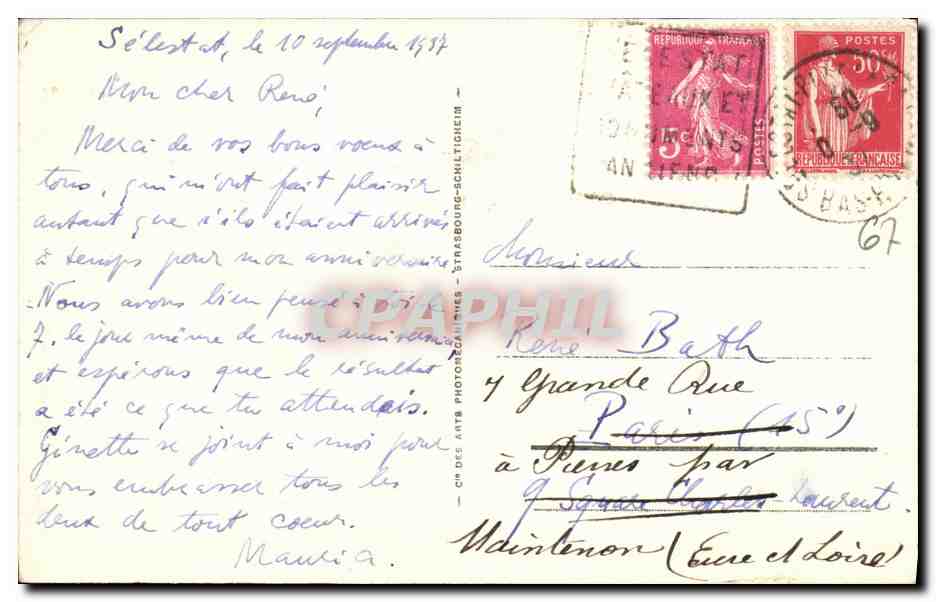 Sélestat, le 10 septembre 1937
Mon cher René,
Merci de vos bons voeux à
tous, qui m'ont fait plaisir
autant que s'ils étaient arrivés
à temps pour mon anniversaire.
Nous avons bien pensé à toi le
7, le jour même de mon anniversaire,
et espérons que le résultat
a été ce que tu attendais.
Ginette se joint à moi pour
vous embrasser tous les
deux de tout coeur.
Cie DES ARTS PHOTOMECANIQUES - STRASBOURG-SCHILTIGHEIM
REPUBLIQUE FRANCAISE
5c
POSTES
POSTES
50c
REPUBLIQUE FRANCAISE
MONUMENTS
ANCIENS
67
CPAPHIL
Monsieur
René Bath
7 Grande Rue
Paris (15e)
à Pierres par
9 Square Charles-Laurent
Maintenon (Eure et Loire)